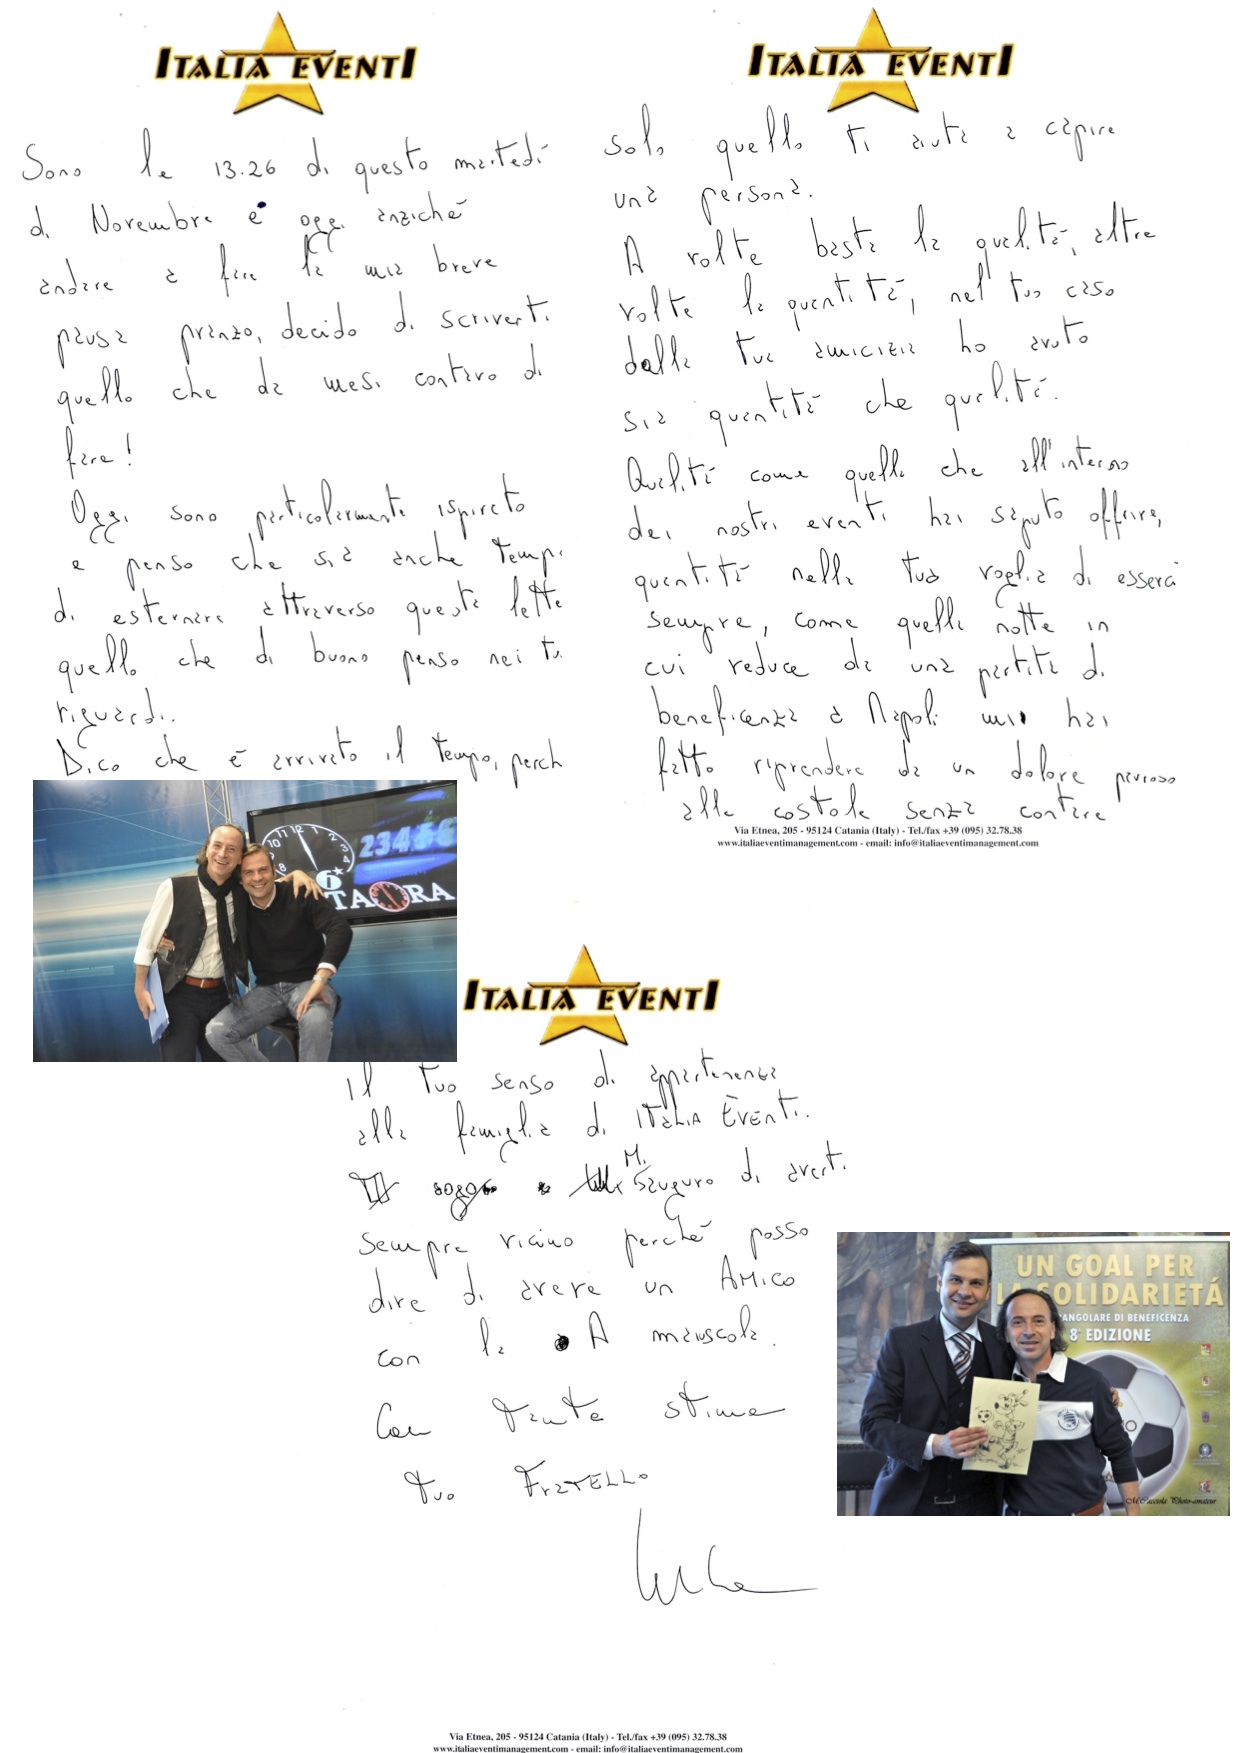 ITALIA EVENTI
Sono le 13.26 di questo martedì
di Novembre e oggi anziché
andare a fare la mia breve
pausa pranzo, decido di scriverti
quello che da mesi contavo di
fare!
Oggi sono particolarmente ispirato
e penso che sia anche tempo
di esternare attraverso questa lette
quello che di buono penso nei tu
riguardi.
Dico che è arrivato il tempo, perch
ITALIA EVENTI
Solo quello ti aiuta a capire
una persona.
A volte basta la qualità, altre
volte la quantità, nel tuo caso
dalla tua amicizia ho avuto
sia quantità che qualità.
Qualità come quella che all'interno
dei nostri eventi hai saputo offrire,
quantità nella tua voglia di esserci
sempre, come quella notte in
cui reduce da una partita di
beneficenza a Napoli mi hai
fatto riprendere da un dolore pauroso
alle costole senza contare
Via Etnea, 205 - 95124 Catania (Italy) - Tel./fax +39 (095) 32.78.38
www.italiaeventimanagement.com - email: info@italiaeventimanagement.com
10 11 12 1 2 3 4 8
23456
6
TA RA
ITALIA EVENTI
Il tuo senso di appartenenza
alla famiglia di ITALIA EVENTI.
M.
auguro di averti
sempre vicino perché posso
dire di avere un AMICO
con la A maiuscola.
Con tanta stima
tuo FRATELLO
Luca
UN GOAL PER
LA SOLIDARIETÁ
ANGOLARE DI BENEFICENZA
8ª EDIZIONE
M.Cacciola Photo-amateur
Via Etnea, 205 - 95124 Catania (Italy) - Tel./fax +39 (095) 32.78.38
www.italiaeventimanagement.com - email: info@italiaeventimanagement.com